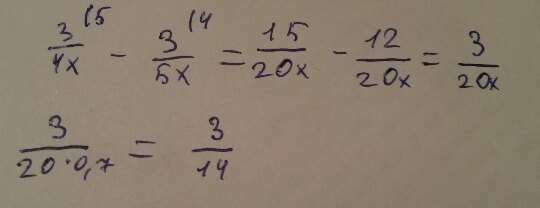 3/4x (5 - 3/5x (4 = 15/20x - 12/20x = 3/20x
3/20·0,7 = 3/14